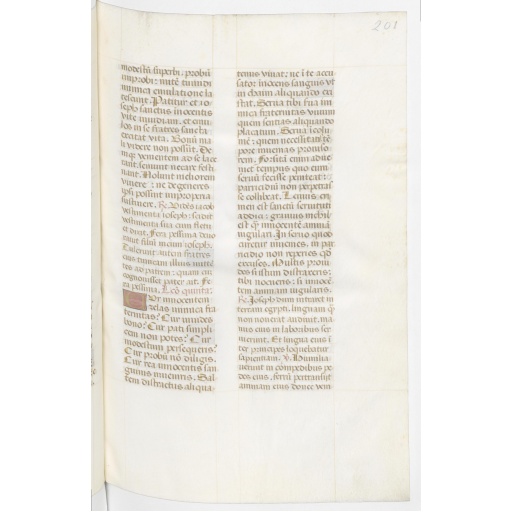 201
modestū superbi: probū
improbi: mitē tumidi
inimica emulatione la
cescunt. Patitur et io
seph sanctus inocentis
vite inuidiam. et emu
los in se fratres sancta
excitat vita. Bonū ma
li videre non possūt. De
niqȝ venientem ad se lace
rant. seuiunt necare festi
nant. Nolunt meliorem
vivere: ne degeneres
ipsi possint improperia
sustinere. Rͣ. Vidēs iacob
vestimenta ioseph: scidit
vestimenta sua cum fletu
et dixit. Fera pessima deuo
rauit filiū meum ioseph.
Tulerunt autem fratres
eius tunicam illius mittē
tes ad patrem: quam cū
cognouisset pater ait. Fe
ra pessima. Leō quinta.
Cur innocentem
zelas inimica fra
ternitas? Cur inuides
bono? Cur pati simpli
cem non potes? Cur
modestum persequeris?
Cur probū nō diligis.
Cur rea innocentis san
guinis inueniris. Sal
tem distractus aliqua
tenus viuat: ne i te accu
sator incexens sanguis vr
in chaim aliquando exi
stat. Serua tibi tua ini
mica fraternitas viuum
quem sentias aliquando
placatum. Serua īcolu
mē: quem necessitatis tē
pore inuenias promiso
rem. Forsitā enim adue
niet tempus quo eum
seruū fecisse peniteat:
parricidiū non perpetras
se collibeat. Lenius cri
men est sanctū seruituti
addici: grauius nichil
est qȝ innocentē animā
iugulari. In seruo quod
cumetur inuenies. in par
ricidio non reperies qd
excuses. Multis proui
des si istum distraxeris:
tibi nocueris: si innocē
tem animam iugularis.
Rͣ. Ioseph dum intraret in
terram egypti. linguam qͣ
non nouerat audiuit. ma
nus eius in laboribus ser
uierunt. Et lingua eius ī
ter principes loquebatur
sapientiam. v. Humilia
uerunt in compedibus pe
des eius. ferrū pertransiit
animam eius donec veni